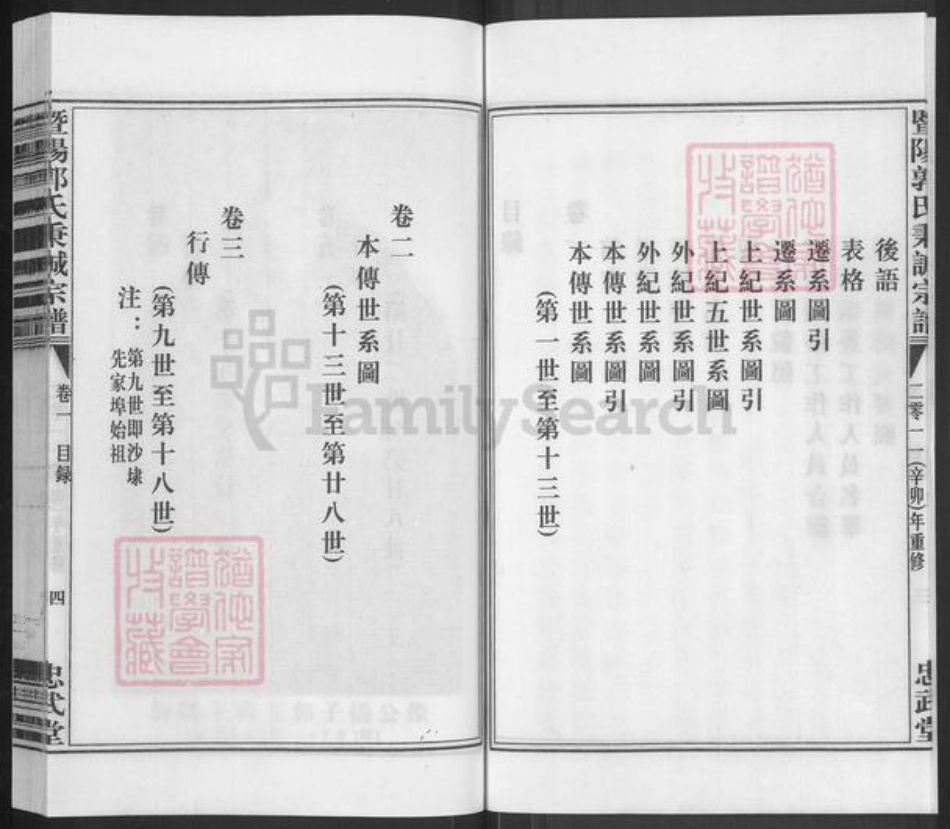 暨陽郭氏秉誠宗譜
二零一一(辛卯)年重修
忠武堂
後語
表格
遷系圖引
遷系圖
上紀世系圖引
上紀五世系圖
外紀世系圖引
外紀世系圖
本傳世系圖引
本傳世系圖
(第一世至第十三世)
卷二
本傳世系圖
(第十三世至第廿八世)
卷三
行傳
(第九世至第十八世)
注：第九世即沙埭
先家埠始祖
暨陽郭氏秉誠宗譜
卷一 目録
四
忠武堂
FamilySearch